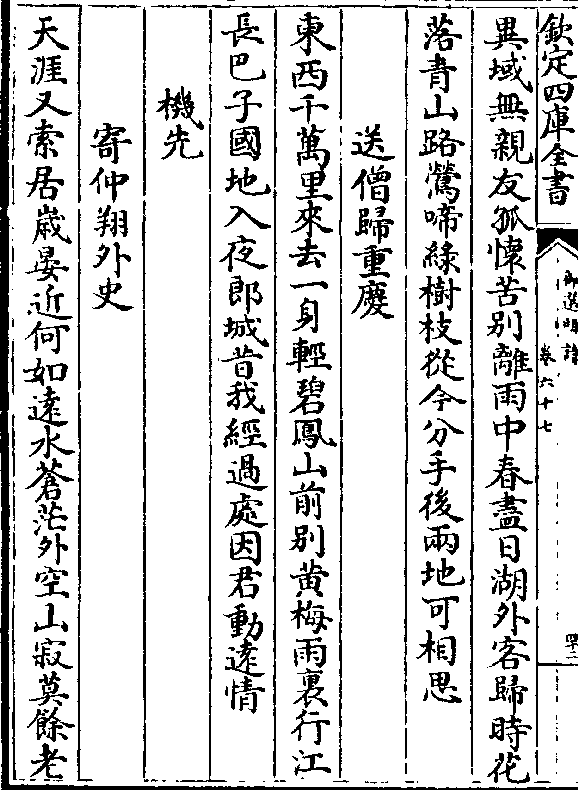 欽定四庫全書
御選明詩
卷六十七
異域無親友孤懷苦别離雨中春盡日湖外客歸時花
落青山路鶯啼綠樹枝從今分手後兩地可相思
送僧歸重慶
東西千萬里來去一身輕碧鳳山前别黄梅雨裏行江
長巴子國地入夜郎城昔我經過處因君動遠情
機先
寄仲翔外史
天涯又索居歲晏近何如遠水蒼茫外空山寂莫餘老